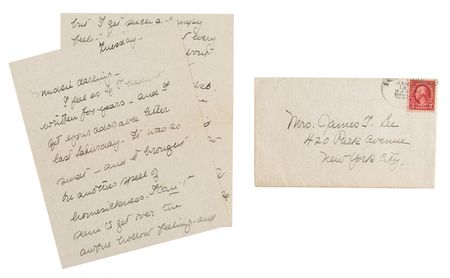 but I get such a
feel -
Tuesday -
darling -
I feel as if I hadn't
written for years - and I
got your adorable letter
last Saturday - It was so
sweet - and it brought
on another spell of
homesickness. I can't
seem to get over the
awful hollow feeling - and
Mrs. James T. Lee
420 Park Avenue
New York City.